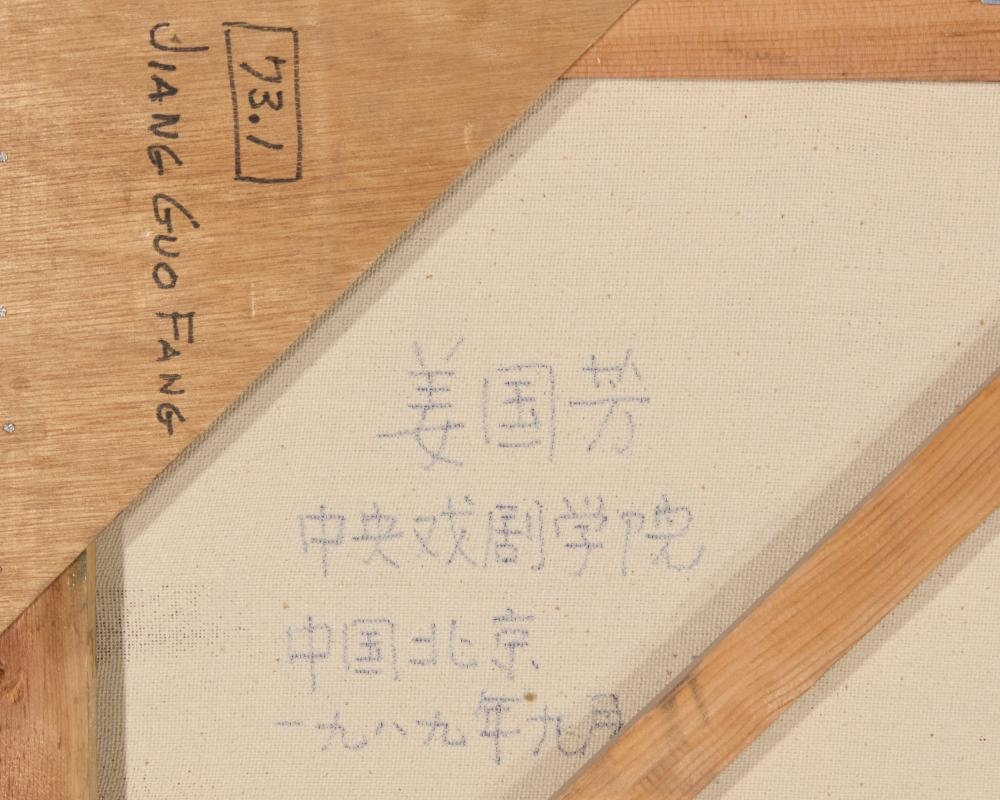 73.1
JIANG GUO FANG
姜国芳
中央戏剧学院
中国北京
一九八九年九月